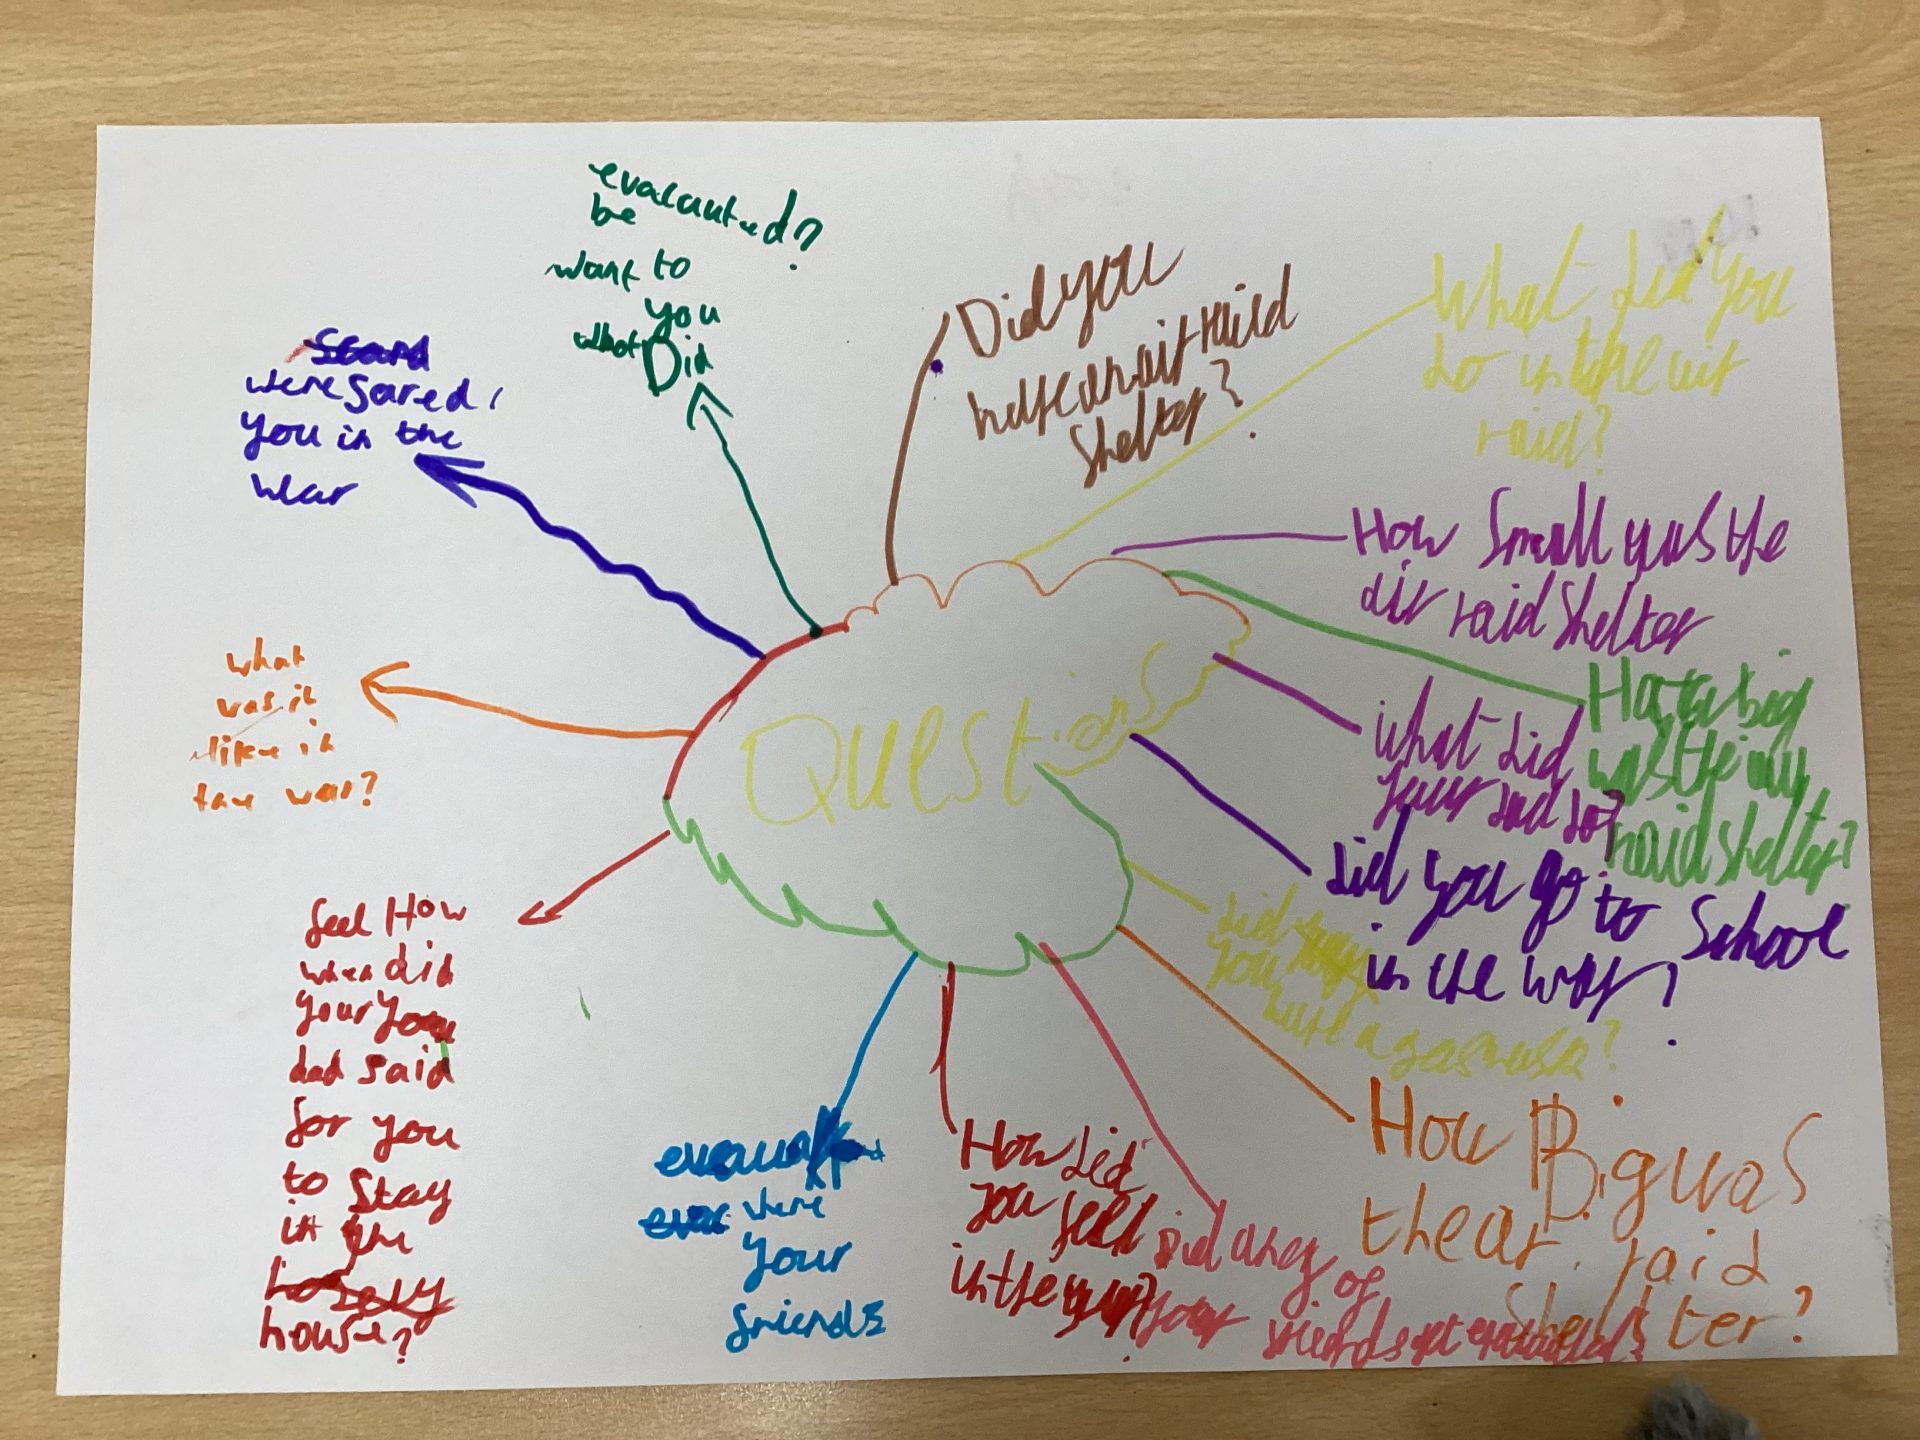 QUEStions
evacauted?
be
want to
you
what Did
were scared
you in the
wear
what
was it
like in
tan war?
feel How
when did
your you
dad said
for you
to stay
in the
house?
were
your
friends
How did
you feel
in the war?
Did aney of
your friends get
How Big was
the air raid
Shelter?
did
you have a gasmask?
did you go to School
in the war?
what did
your dad do?
How big
was the air
raid shelter?
How Small was the
air raid Shelter
What did you
do in the air
raid?
Did you
have an air raid
Shelter?